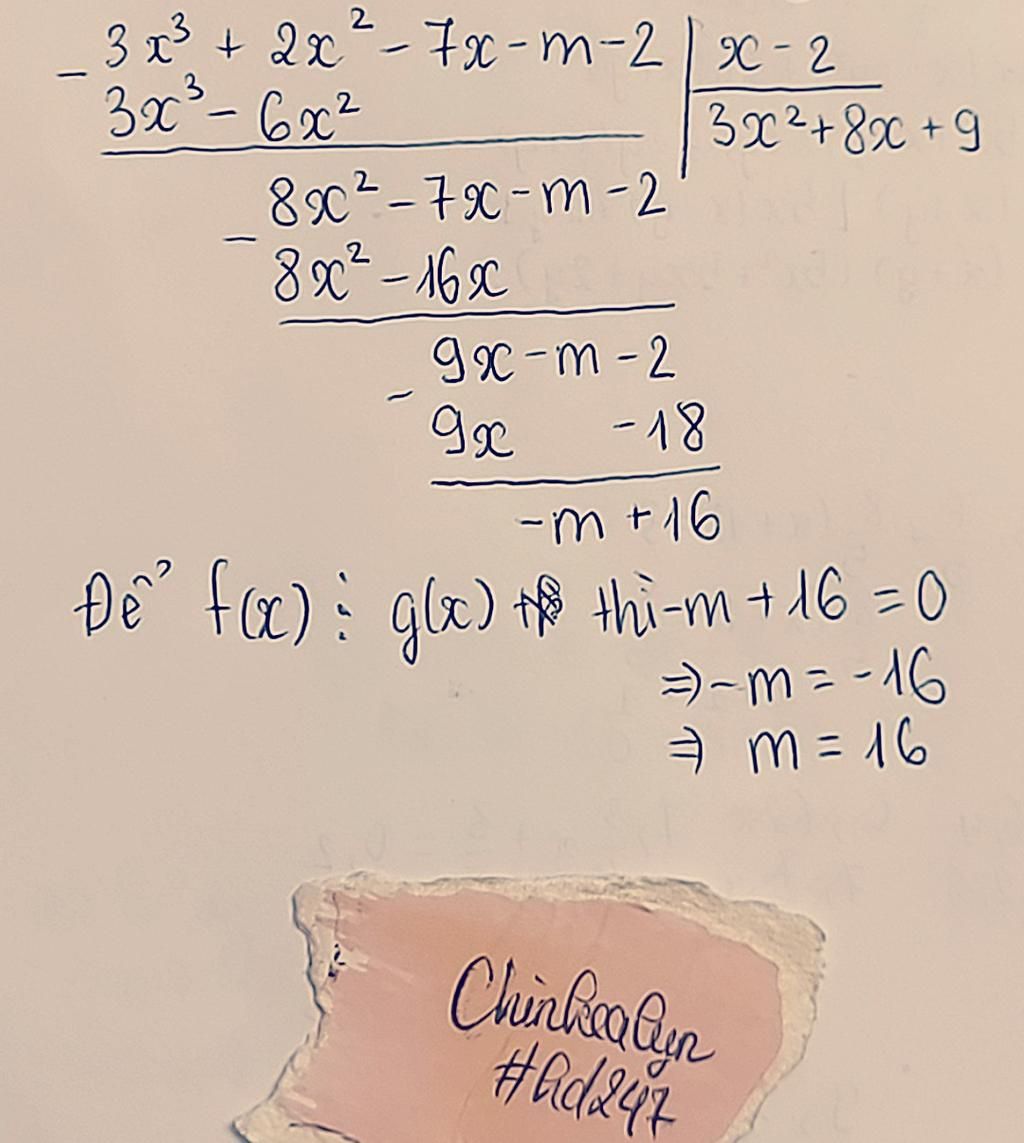 3x³ + 2x² - 7x - m - 2 | x - 2
- 3x³ - 6x² | 3x² + 8x + 9
8x² - 7x - m - 2
- 8x² - 16x
9x - m - 2
- 9x - 18
-m + 16
Để f(x) ⋮ g(x) thì -m + 16 = 0
⇒ -m = -16
⇒ m = 16
#Ad247